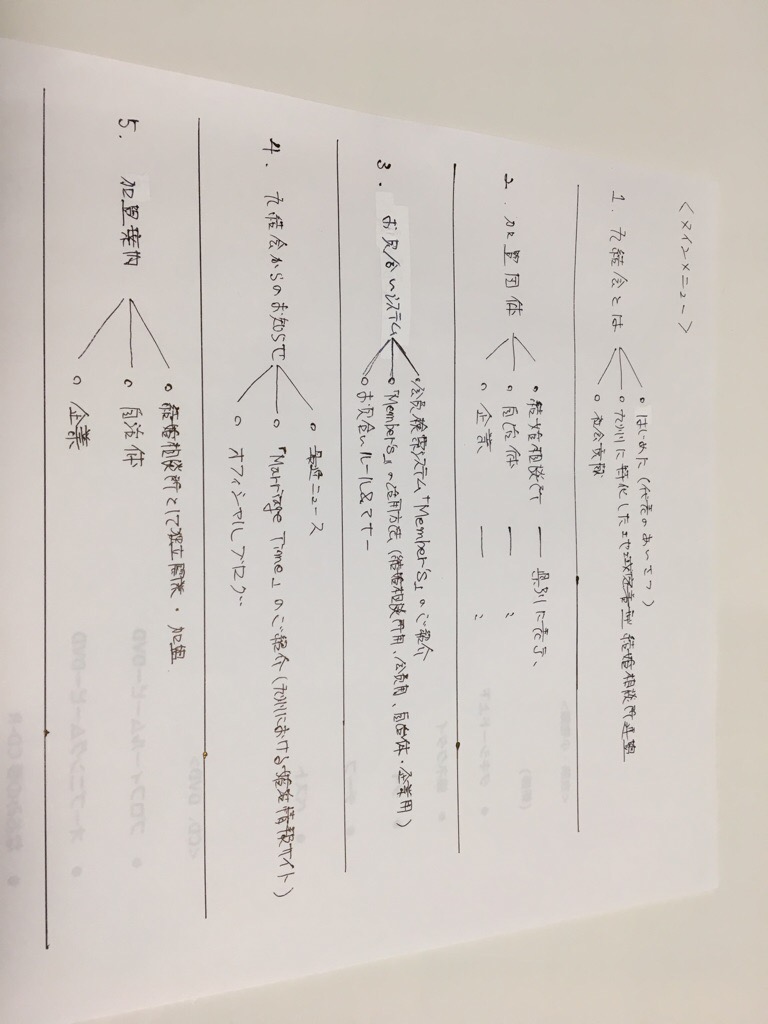 <メインメニュー>
1. 九結会とは
○ はじめに (代表のあいさつ)
○ 九州に特化した地域密着型結婚相談所連盟
○ 社会貢献
2. 加盟団体
○ 結婚相談所 — 県別に表示、
○ 自治体 — 〃
○ 企業 — 〃
3. お見合いシステム
○ 会員検索システム「Member's」のご紹介
○ 「Member's」の活用方法 (結婚相談所用、会員用、自治体・企業用)
○ お見合いルール&マナー
4. 九結会からのお知らせ
○ 最近ニュース
○ 『Marriage Time』のご紹介 (九州における婚活情報サイト)
○ オフィシャルブログ
5. 加盟案内
○ 結婚相談所として独立開業・加盟
○ 自治体
○ 企業